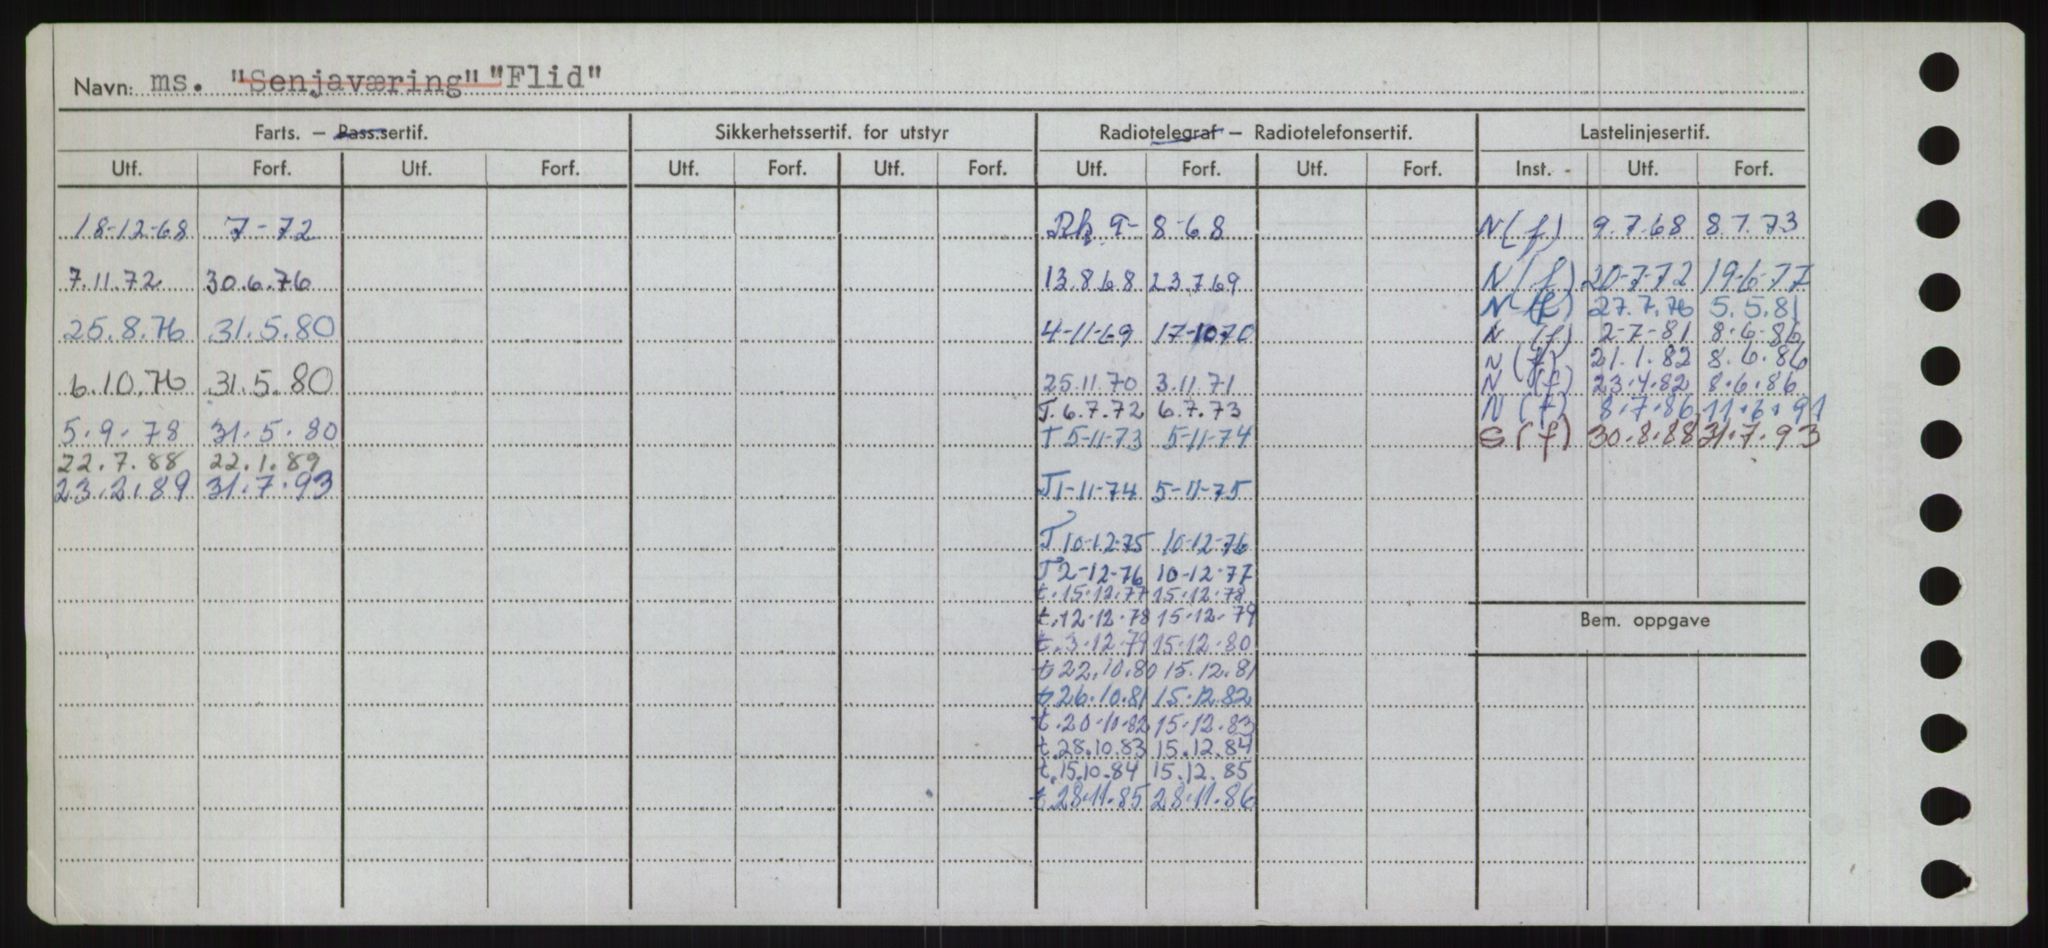 Navn: ms. "Senjaværing" "Flid"
Farts. – Pass.sertif. Sikkerhetssertif. for utstyr Radiotelegraf – Radiotelefonsertif. Lastelinjesertif.
Utf. Forf. Utf. Forf. Utf. Forf. Utf. Forf. Utf. Forf. Utf. Forf. Inst. - Utf. Forf.
18-12-68 7-72 8-68 N(f) 9.7.68 8.7.73
7.11.72 30.6.76 13.8.68 23.7.69 N(f) 20-7-72 19-6-77
N(f) 27.7.76 5.5.81
25.8.76 31.5.80 4-11-69 17-10-70 N(f) 2-7-81 8-6-86
N(f) 21.1.82 8.6.86
6.10.76 31.5.80 25.11.70 3.11.71 N(f) 23.4.82 8.6.86
T. 6.7.72 6.7.73 N(f) 8.7.86 11.6.91
5.9.78 31.5.80 T 5-11-73 5-11-74 G(f) 30.8.88 31.7.93
22.7.88 22.1.89
23.2.89 31.7.93 T 1-11-74 5-11-75
T 10-12-75 10-12-76
T 2-12-76 10-12-77
t. 15.12.77 15.12.78
t. 12.12.78 15.12.79 Bem. oppgave
t. 3.12.79 15.12.80
t 22.10.80 15.12.81
t 26.10.81 15.12.82
t. 20.10.82 15.12.83
t. 28.10.83 15.12.84
t. 15.10.84 15.12.85
t 28.11.85 28.11.86